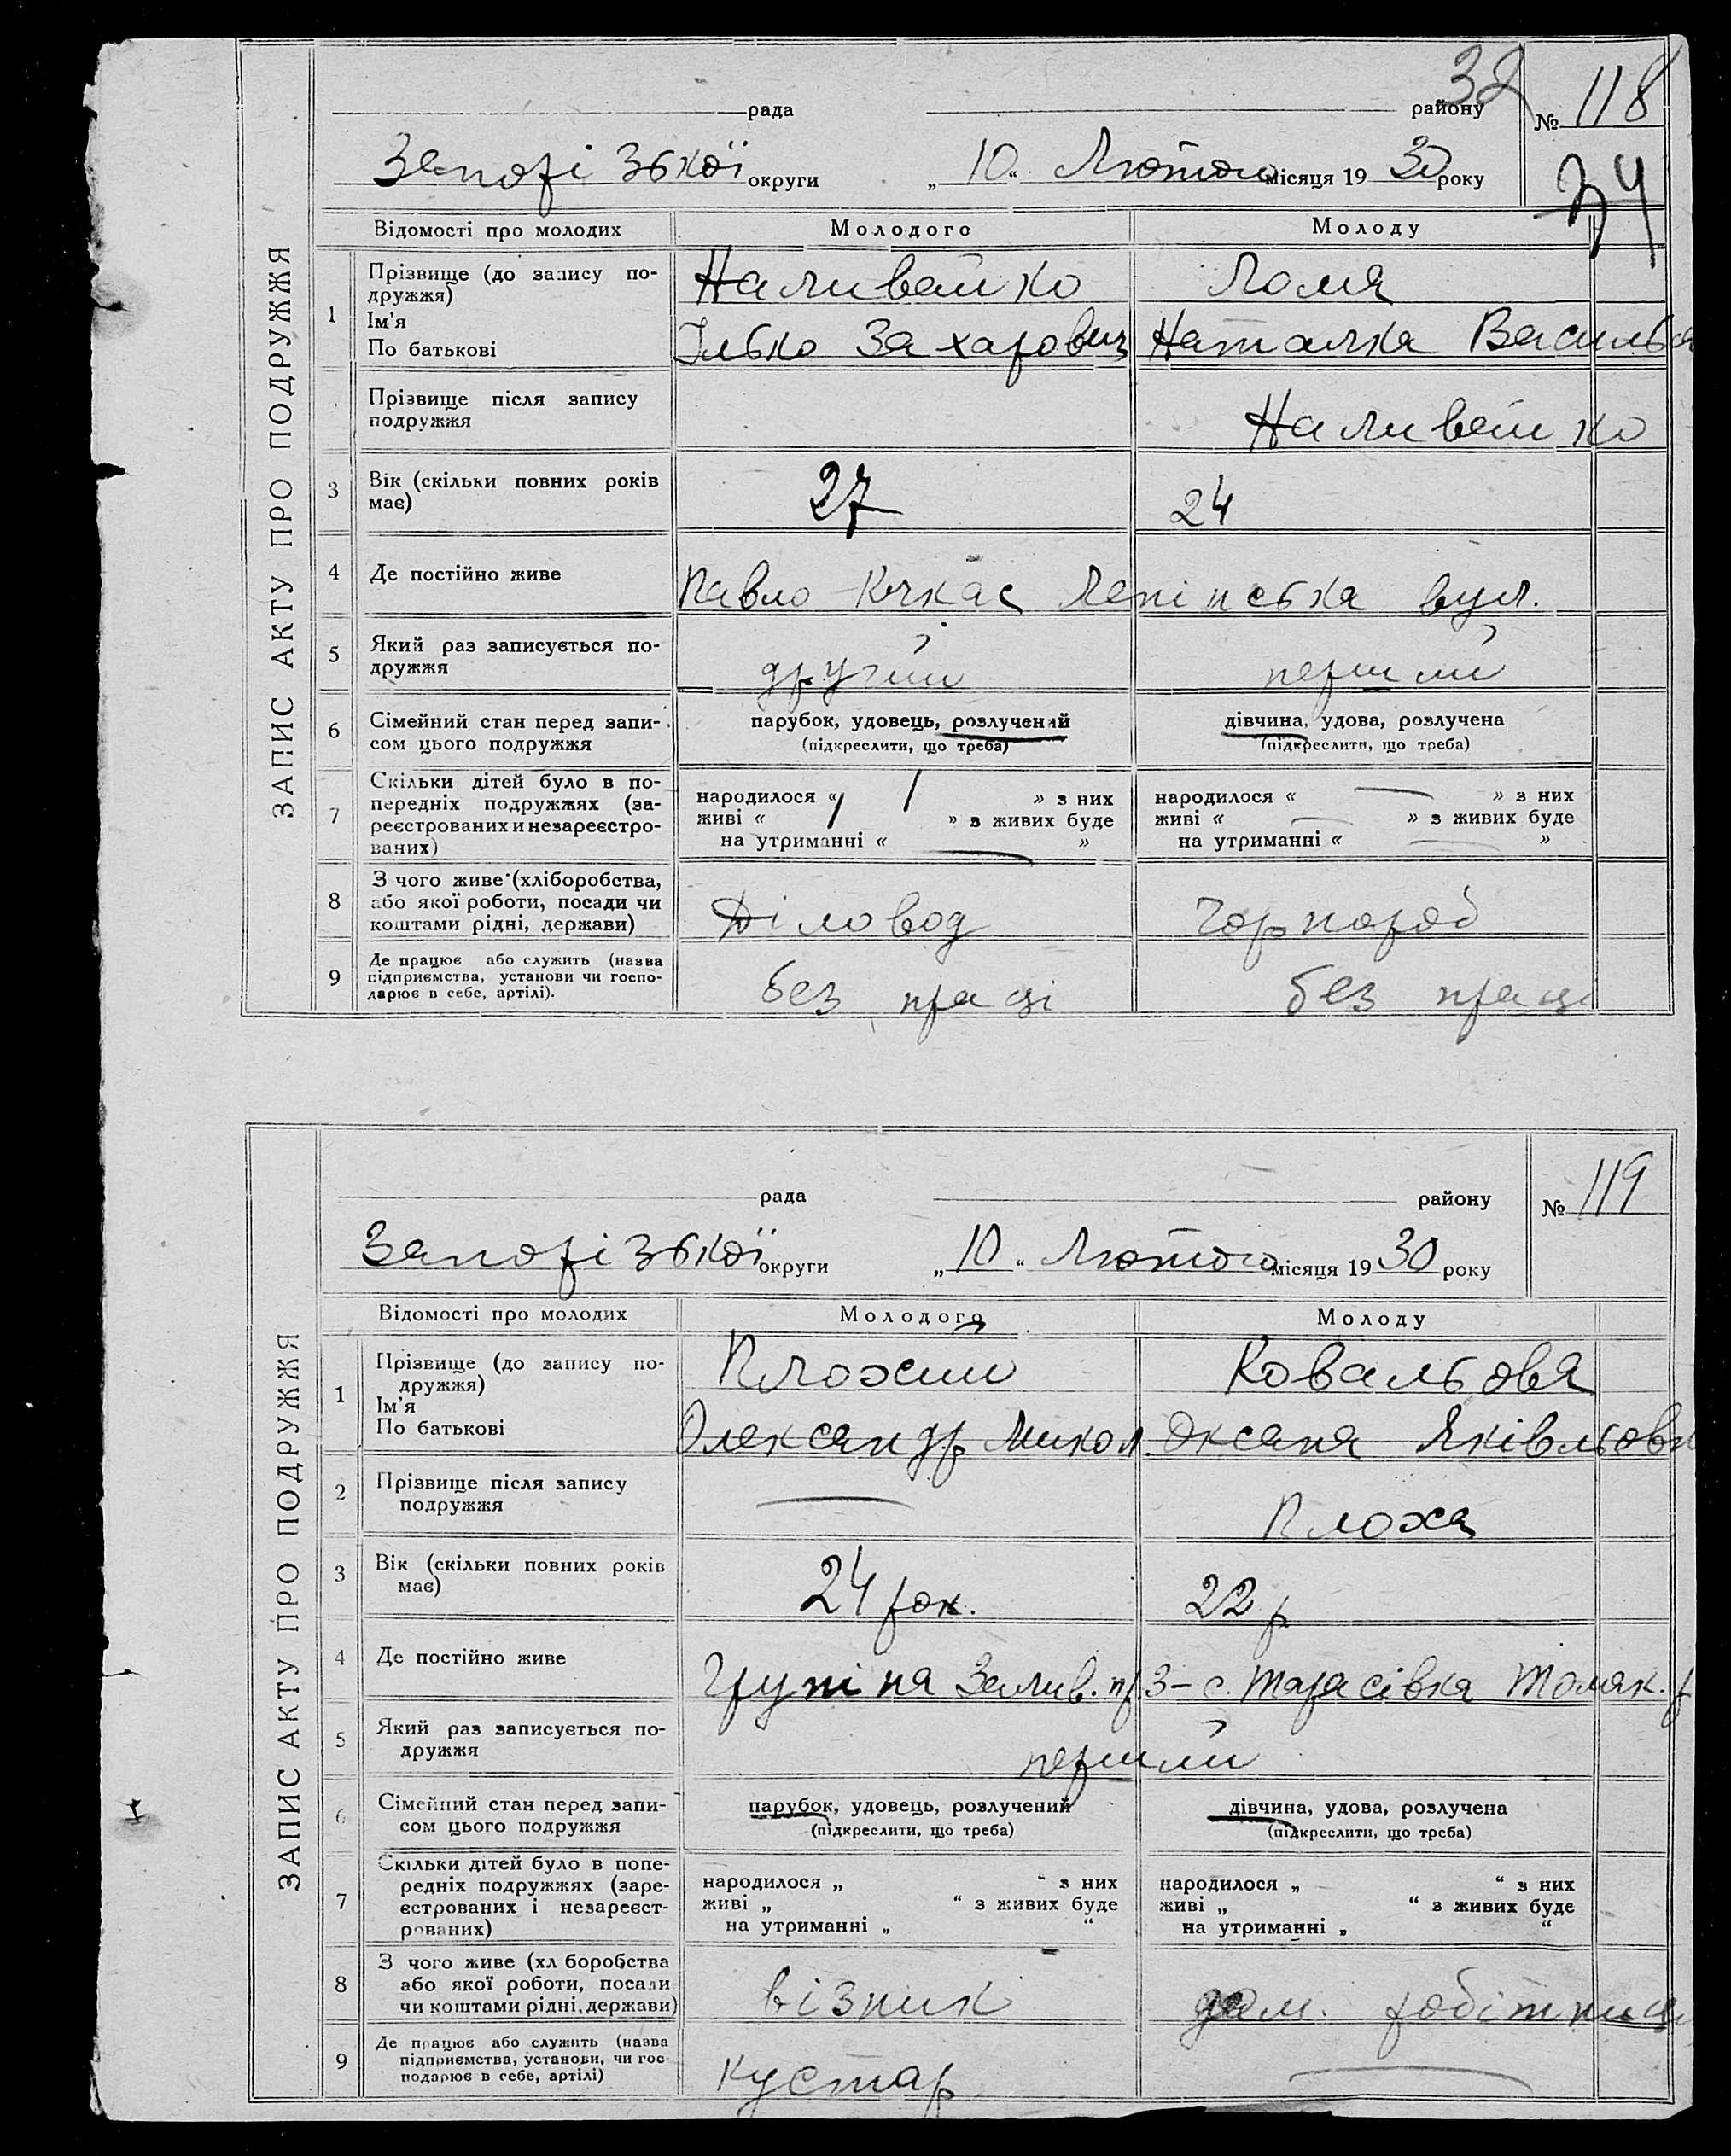 32
рада района № 118
Запорізької округи „10“ Лютого місяця 1930 року
34
ЗАПИС АКТУ ПРО ПОДРУЖЖЯ
Відомості про молодих Молодого Молоду
1 Прізвище (до запису подружжя) Наливайко
Ім'я
По батькові Ілько Захарович Наталка Василівна
Прізвище після запису подружжя Наливайко
3 Вік (скільки повних років має) 27 24
4 Де постійно живе Павло-Кічкас Ленінська вул.
5 Який раз записується подружжя другий перший
6 Сімейний стан перед записом цього подружжя парубок, удовець, розлучений дівчина, удова, розлучена
(підкреслити, що треба) (підкреслити, що треба)
7 Скільки дітей було в попередніх подружжях (зареєстрованих и незареєстрованих)
народилося « 1 » з них народилося « — » з них
живі « 1 » з живих буде живі « — » з живих буде
на утриманні « — » на утриманні « — »
8 З чого живе (хліборобства, або якої роботи, посади чи коштами рідні, держави) Діловод Чорнороб
9 Де працює або служить (назва підприємства, установи чи господарює в себе, артілі). без праці без праці
рада району № 119
Запорізької округи „10“ Лютого місяця 1930 року
ЗАПИС АКТУ ПРО ПОДРУЖЖЯ
Відомості про молодих Молодого Молоду
1 Прізвище (до запису подружжя) Плохий Ковальова
Ім'я
По батькові Олександр Микол. Оксана Яківльовн
2 Прізвище після запису подружжя — Плоха
3 Вік (скільки повних років має) 24 рок. 22 р
4 Де постійно живе 3 – с. Тарасівка Томак. р
5 Який раз записується подружжя перший
6 Сімейний стан перед записом цього подружжя парубок, удовець, розлучений дівчина, удова, розлучена
(підкреслити, що треба) (підкреслити, що треба)
7 Скільки дітей було в попередніх подружжях (зареєстрованих і незареєстрованих)
народилося „ “ з них народилося „ “ з них
живі „ “ з живих буде живі „ “ з живих буде
на утриманні „ “ на утриманні „ “
8 З чого живе (хліборобства або якої роботи, посади чи коштами рідні, держави) візник дом. робітниця
9 Де працює або служить (назва підприємства, установи, чи господарює в себе, артілі) кустар —